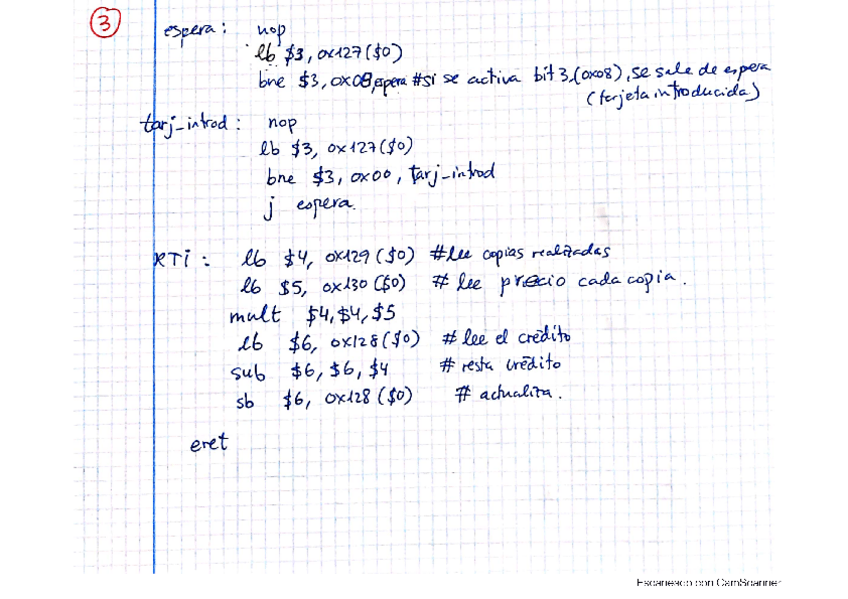 3
espera: nop
lb $3, 0x127($0)
bne $3, 0x08, espera #si se activa bit 3 (0x08), se sale de espera
(tarjeta introducida)
tarj_introd: nop
lb $3, 0x127($0)
bne $3, 0x00, tarj_introd
j espera.
RTI: lb $4, 0x129($0) #lee copias realizadas
lb $5, 0x130($0) # lee precio cada copia.
mult $4,$4,$5
lb $6, 0x128($0) # lee el crédito
sub $6, $6, $4 # resta crédito
sb $6, 0x128($0) # actualiza.
eret
Escaneado con CamScanner